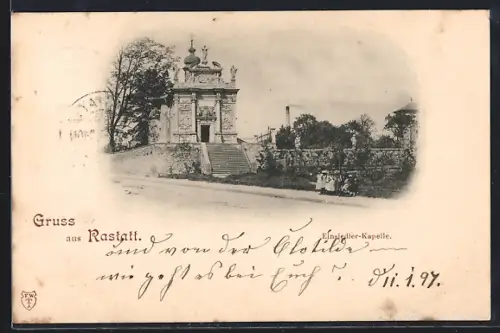 Gruss
aus Rastatt.
Einsiedler-Kapelle.
und von der Clotilde —
wie geht es bei Euch? d 11.1.97.